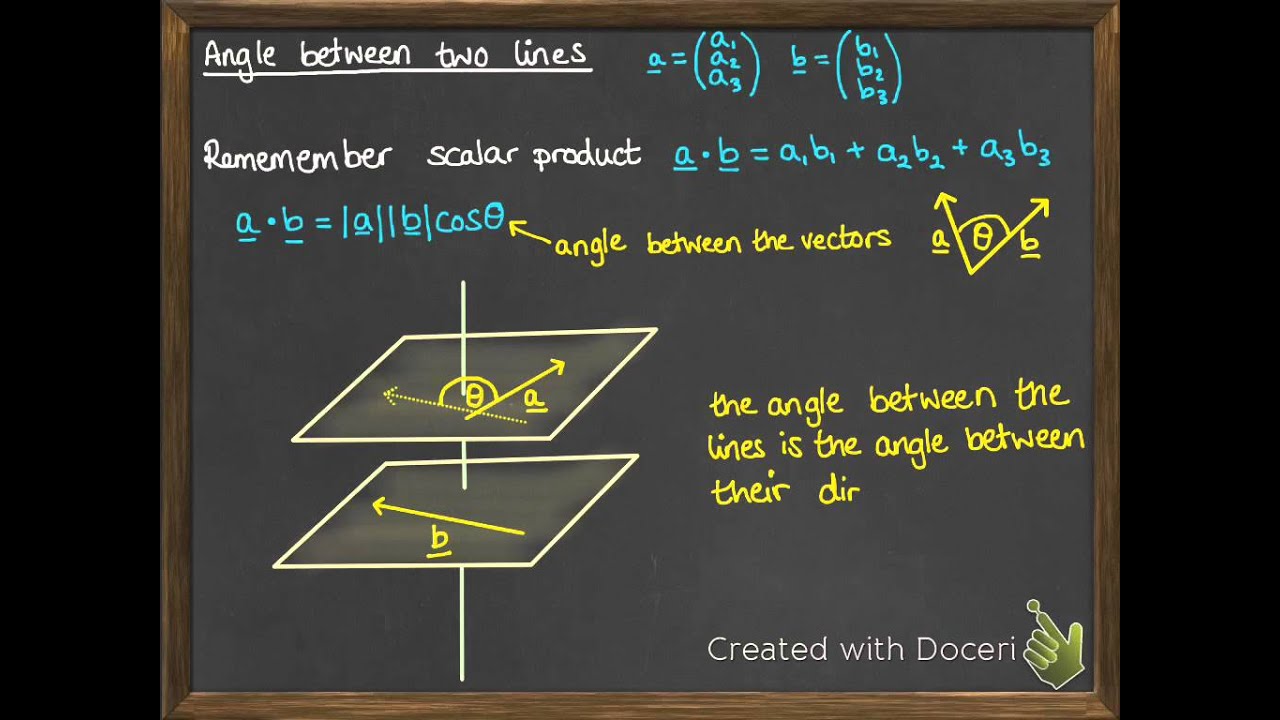 Angle between two lines a = (a1 a2 a3) b = (b1 b2 b3)
Ramemember scalar product a · b = a1b1 + a2b2 + a3b3
a · b = |a||b|cosθ
angle between the vectors
a θ b
θ a
the angle between the
lines is the angle between
their dir
b
Created with Doceri